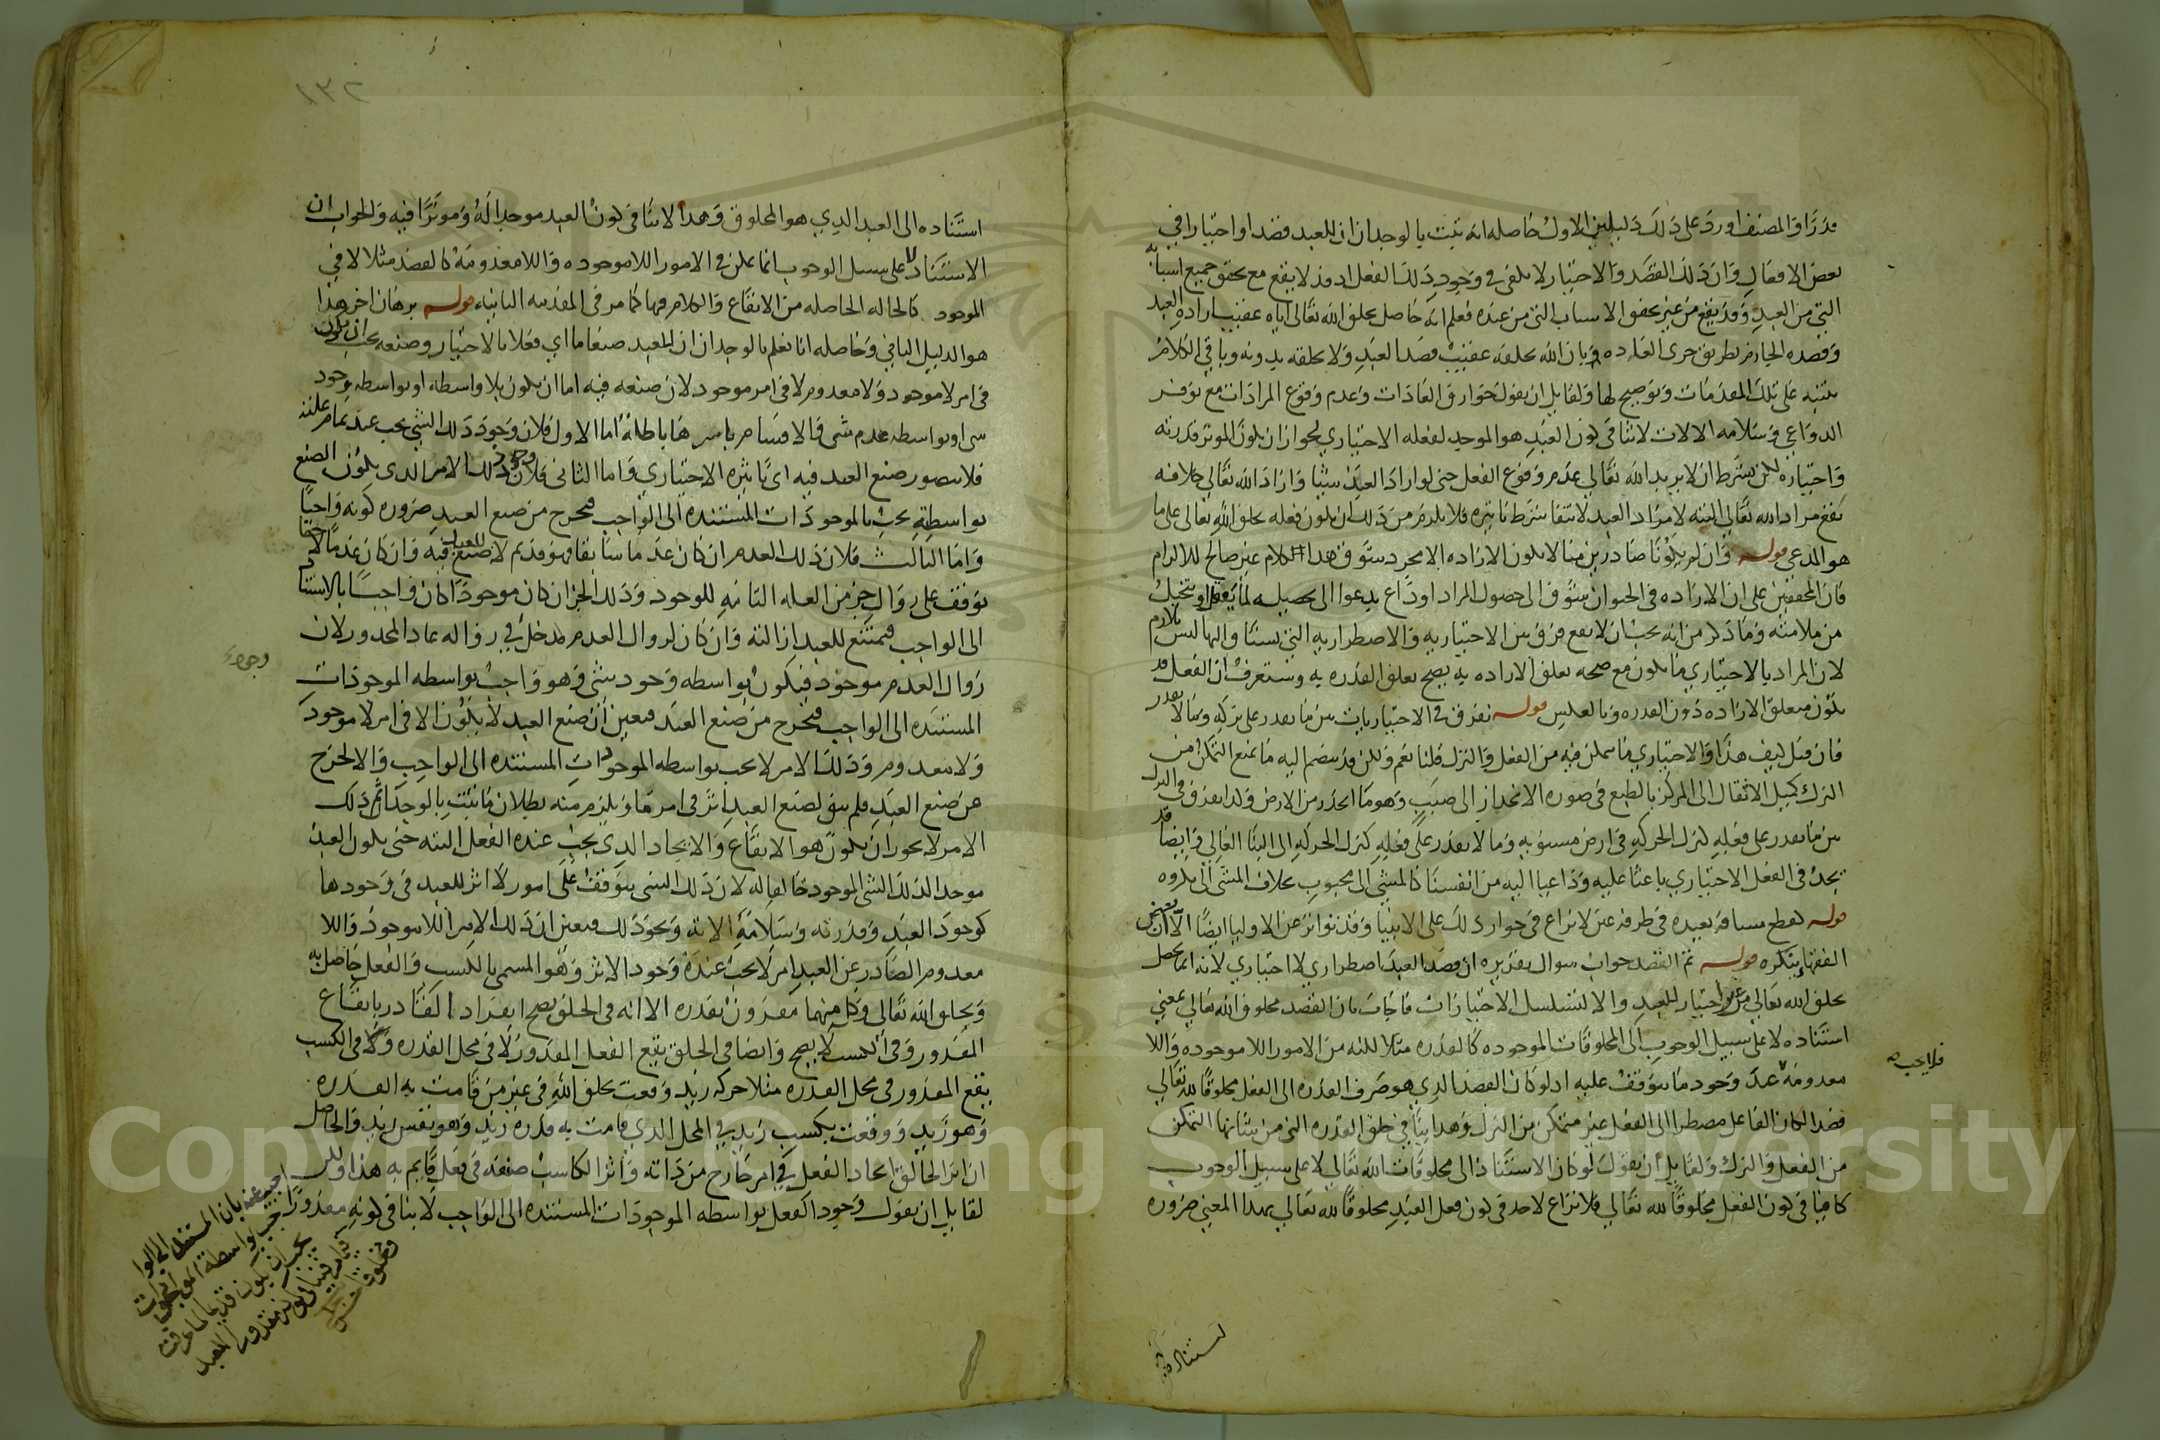 قدرا والمصنف اورد على ذلك دليلين الاول حاصله انه ثبت بالوجدان ان للعبد قصدا واختيارا في
بعض الافعال وان ذلك القصد والاختيار لا يكفى في وجود ذلك الفعل اذ قد لا يقع مع تحقق جميع اسبابه
التي من العبد وقد يقع من غير تحقق الاسباب التي من عنده فعلم انه حاصل بخلق الله تعالى اياه عقيب ارادة العبد
وقصده الجازم بطريق جرى العادة بان الله يخلقه عقيب قصد العبد ولا يخلقه بدونه وباقي الكلام
تنبيه على تلك المقدمات وتوضيح لها ولقايل ان يقول خوارق العادات وعدم وقوع المرادات مع توفر
الدواعي وسلامة الالات لا تنافى كون العبد هو الموجد لفعله الاختياري لجواز ان يكون الموثر قدرته
واختياره لكن بشرط ان لا يريد الله تعالى عدم وقوع الفعل حتى لو اراد العبد شيا واراد الله تعالى خلافه
يقع مراد الله تعالى البته لا مراد العبد لانتفا شرط تاثيره فلا يلزم من ذلك ان يكون فعله بخلق الله تعالى على ما
هو المدعى قوله وان لم يكونا صادرين منا لا يكون الارادة الا مجرد تشوق هذا الكلام غير صالح للالزام
فان المحققين على ان الارادة في الحيوان شوق الى حصول المراد او داع يدعوا الى تحصيله لما يعقل او يتخيل
من ملامته وما ذكر من انه يجب ان لا يقع فرق بين الاختيارية والاضطرارية التي نشتاق اليها ليس بلازم
لان المراد بالاختياري ما يكون مع صحة تعلق الارادة به يصح تعلق القدرة به وستعرف ان الفعل قد
يكون متعلق الارادة دون القدرة وبالعكس قوله نفرق في الاختياريات بين ما يقدر على تركه وما لا يقدر
فان قيل كيف هذا والاختياري ما يتمكن فيه من الفعل والترك قلنا نعم ولكن قد ينضم اليه ما يمنع التمكن من
الترك كميل الاثقال الى المركز بالطبع في صورة الانحدار الى صبب وهو ما انحدر من الارض وكذا يفرق في الترك
بين ما يقدر على فعله كترك الحركة في ارض مستوية وما لا يقدر على فعله كترك الحركة الى البنا العالي وايضا قد
يجد في الفعل الاختياري باعثا عليه وداعيا اليه من انفسنا كالمشي الى محبوب بخلاف المشي الى مكروه
قوله كقطع مسافة بعيدة في طرفة عين لا نزاع في جواز ذلك على الانبيا وقد تواتر عن الاوليا ايضا الا ان بعض
الفقها ينكره قوله ثم القصد جواب سوال تقديره ان قصد العبد اضطراري لا اختياري لانه انما يحصل
بخلق الله تعالى من غير اختيار للعبد والا لتسلسل الاختيارات فاجاب بان القصد مخلوق الله تعالى بمعنى
استناده لا على سبيل الوجوب الى المخلوقات الموجودة كالقدرة مثلا لكنه من الامور اللاموجودة واللا
معدومة عند وجود ما يتوقف عليه اذ لو كان القصد الذي هو صرف القدرة الى الفعل مخلوقا لله تعالى
قصدا لكان الفاعل مضطرا الى الفعل غير متمكن من الترك وهذا ينافي خلق القدرة التي من شانها التمكن
من الفعل والترك ولقايل ان يقول لو كان الاستناد الى مخلوقات الله تعالى لا على سبيل الوجوب
كافيا في كون الفعل مخلوقا لله تعالى فلا نزاع لاحد في كون فعل العبد مخلوقا لله تعالى بهذا المعنى ضرورة
فلا يجب
استناده
١٣٢
استناده الى العبد الذي هو المخلوق وهذا لا ينافى كون العبد موجدا له وموثرا فيه والجواب ان
الاستناد لا على سبيل الوجوب انما يمكن في الامور اللاموجودة واللامعدومة كالقصد مثلا لا في
الموجود كالحالة الحاصلة من الايقاع والكلام فيها كما مر في المقدمة الثانية قوله برهان اخر هذا
هو الدليل الثاني وحاصله انا نعلم بالوجدان ان للعبد صنعا ما اي فعلا بالاختيار وصنعه يجب ان يكون
في امر لا موجود ولا معدوم لا في امر موجود لان صنعه فيه اما ان يكون بلا واسطة او بواسطة وجود
شي او بواسطة عدم شي فالاقسام باسرها باطلة اما الاول فلان وجود ذلك الشي يجب عند تمام علته
فلا يتصور صنع العبد فيه اى تاثيره الاختياري واما الثاني فلان وجود ذلك الامر الذى يكون الصنع
بواسطته يجب بالموجودات المستندة الى الواجب فيخرج من صنع العبد ضرورة كونه واجبا
واما الثالث فلان ذلك العدم ان كان عدما سابقا فهو قديم لا صنع للعبد فيه وان كان عدما لاحقا
توقف على زوال جز من العلة التامة للوجود وذلك الجز ان كان موجودا كان واجبا بالاستناد
الى الواجب فيمتنع للعبد ازالته وان كان لزوال العدم مدخل في زواله عاد المحذور لان
زوال العدم موجود فيكون بواسطة وجود شي وهو واجب بواسطة الموجودات
المستندة الى الواجب فيخرج من صنع العبد فتعين ان صنع العبد لا يكون الا في امر لا موجود
ولا معدوم وذلك الامر لا يجب بواسطة الموجودات المستندة الى الواجب والا لخرج
عن صنع العبد فلم يبق لصنع العبد اثر في امر ما ويلزم منه بطلان ما يثبت بالوجدان ثم ذلك
الامر لا يجوز ان يكون هو الايقاع والايجاد الذي يجب عنده الفعل البته حتى يكون العبد
موجدا لذلك الشي الموجود خالقا له لان ذلك الشي يتوقف على امور لا اثر للعبد في وجودها
كوجود العبد وقدرته وسلامة الاته ونحو ذلك فتعين ان ذلك الامر اللاموجود واللا
معدوم الصادر عن العبد امر لا يجب عنده وجود الاثر وهو المسمى بالكسب والفعل حاصل به
وبخلق الله تعالى وكل منهما مقرون بقدرة الا انه في الخلق يصح انفراد القادر بايقاع
المقدور وفى الكسب لا يصح وايضا في الخلق يقع الفعل المقدور لا في محل القدرة وفى الكسب
يقع المقدور في محل القدرة مثلا حركة زيد وقعت بخلق الله في غير من قامت به القدرة
وهو زيد ووقعت بكسب زيد في المحل الذي قامت به قدرة زيد وهو نفس زيد والحاصل
ان اثر الخالق ايجاد الفعل في امر خارج من ذاته واثر الكاسب صنعه في فعل قايم به هذا ولكن
لقايل ان يقول وجود الفعل بواسطة الموجودات المستندة الى الواجب لا ينافى كونه مقدورا
اجيب عنه بان المستند الى الوا
جب بواسطة الموجودات
يجب ان يكون قديما لما عرفت